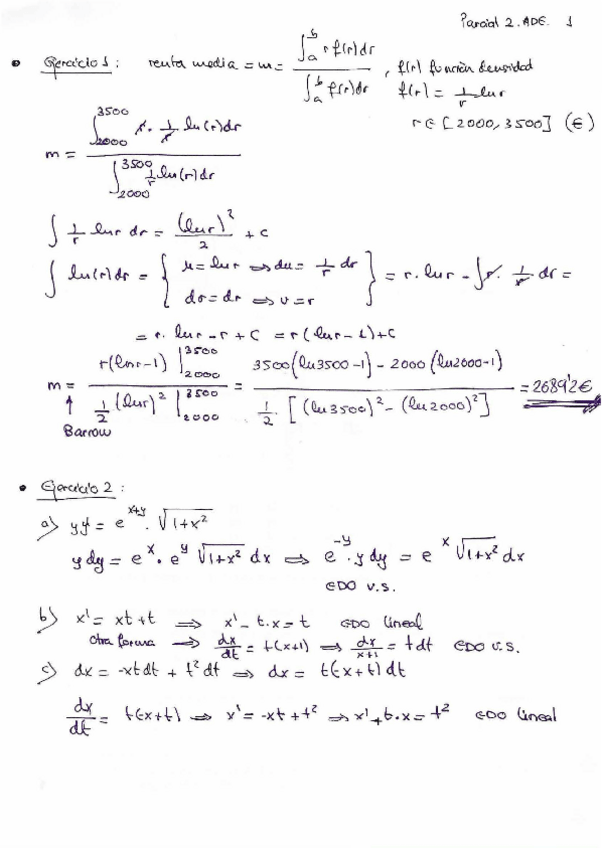 Parcial 2. ADE. 1
• Ejercicio 1: renta media = m = ∫_a^b r f(r)dr / ∫_a^b f(r)dr , f(r) función densidad
f(r) = 1/r ln r
r ∈ [2000, 3500] (€)
m = ∫_2000^3500 r · 1/r ln(r)dr / ∫_2000^3500 1/r ln(r)dr
∫ 1/r ln r dr = (ln r)^2/2 + c
∫ ln(r)dr = { u = ln r ⟹ du = 1/r dr ; dv = dr ⟹ v = r } = r · ln r - ∫ r · 1/r dr =
= r · ln r - r + C = r(ln r - 1) + C
m = r(ln r - 1) |_2000^3500 / 1/2 (ln r)^2 |_2000^3500 = 3500(ln 3500 - 1) - 2000(ln 2000 - 1) / 1/2 · [(ln 3500)^2 - (ln 2000)^2] = 2689'2€
↑
Barrow
• Ejercicio 2:
a) yy' = e^{x+y} · √(1+x^2)
y dy = e^x · e^y √(1+x^2) dx ⟹ e^{-y} · y dy = e^x √(1+x^2) dx
EDO v.s.
b) x' = xt + t ⟹ x' - t·x = t EDO lineal
Otra forma ⟶ dx/dt = t(x+1) ⟹ dx/x+1 = t dt EDO v.s.
c) dx = -xt dt + t^2 dt ⟹ dx = t(-x+t) dt
dx/dt = t(-x+t) ⟹ x' = -xt + t^2 ⟹ x' + t·x = t^2 EDO lineal